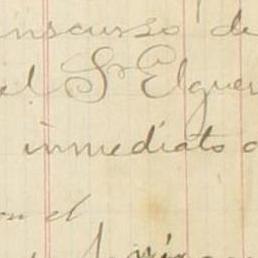 inscurso de
el Sr Elguer
inmediato o
on el